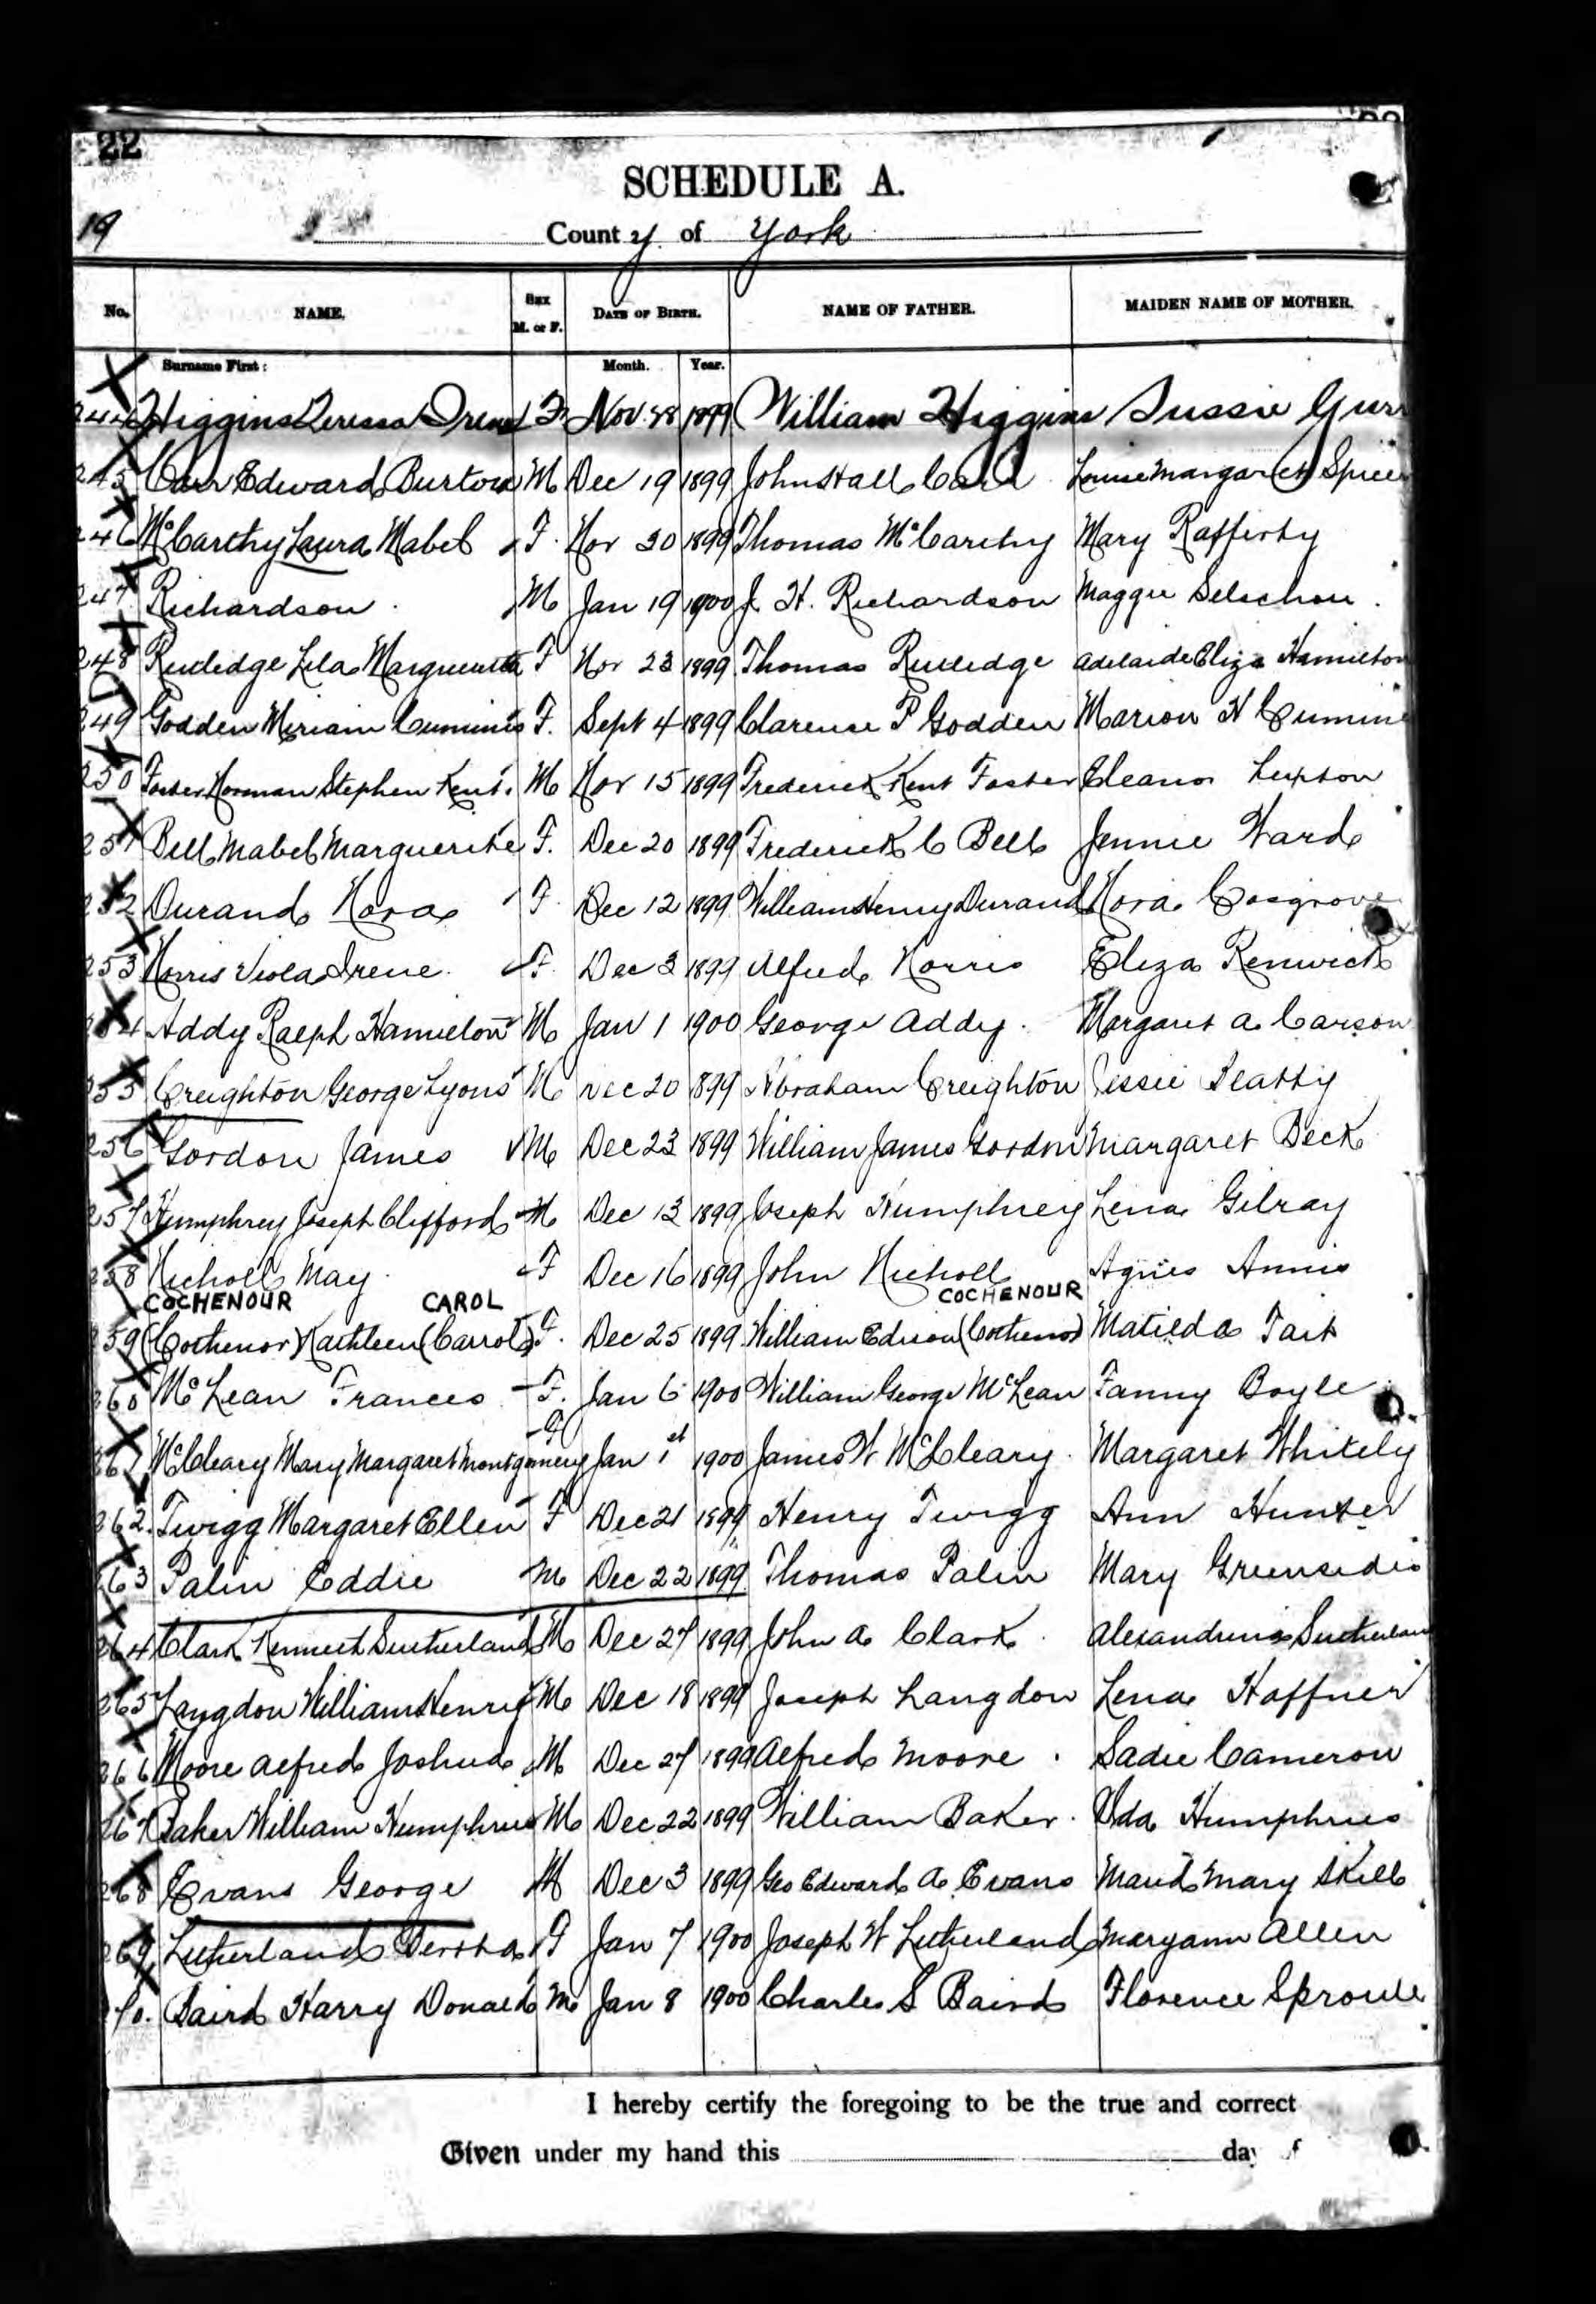 22
SCHEDULE A.
19
County of York
No. NAME. Sex M. or F. DATE OF BIRTH. NAME OF FATHER. MAIDEN NAME OF MOTHER.
Surname First: Month. Year.
244 Higgins Teressa Irene F. Nov. 28 1899 William Higgins Sussie Gurr
245 Carr Edward Burton M Dec 19 1899 John Hall Carr Louise Margaret Spicer
246 McCarthy Laura Mabel F. Nov 30 1899 Thomas McCarthy Mary Rafferty
247 Richardson M Jan 19 1900 J. H. Richardson Maggie
248 Rutledge Lela Marguerita F Nov 23 1899 Thomas Rutledge Adelaide Eliza Hamilton
249 Godden Miriam Cummins F. Sept 4 1899 Clarence P Godden Marion H
250 Foster Norman Stephen Kent M Nov 15 1899 Frederick Kent Foster Eleanor Lupton
251 Bell Mabel Marguerite F. Dec 20 1899 Frederick C Bell Jennie Ward
252 Durand Nora F. Dec 12 1899 William Henry Durand Nora Cosgrove
253 Norris Viola Irene F. Dec 3 1899 Alfred Norris Eliza Renwick
254 Addy Ralph Hamilton M Jan 1 1900 George Addy Margaret A. Carson
255 Creighton George Lyons M Dec 20 1899 Abraham Creighton Jessie Beatty
256 Gordon James M Dec 23 1899 William James Gordon Margaret Beck
257 Humphrey Joseph Clifford M Dec 13 1899 Joseph Humphrey Lena Gilray
258 Nicholl May F Dec 16 1899 John Nicholl Agnes Annis
COCHENOUR CAROL COCHENOUR
259 (Cochenor) Kathleen (Carrol) F. Dec 25 1899 William Edison (Cochenor) Matilda Tait
260 McLean Frances F. Jan 6 1900 William George McLean Fanny Boyle
261 McCleary Mary Margaret Montgomery F Jan 1st 1900 James W McCleary Margaret Whitely
262. Twigg Margaret Ellen F Dec 21 1899 Henry Twigg Ann Hunter
263 Palin Eddie M Dec 22 1899 Thomas Palin Mary Greensides
264 Clark Kenneth Sutherland M Dec 27 1899 John A Clark Alexandrina Sutherland
265 Langdon William Henry M Dec 18 1899 Joseph Langdon Lena Haffner
266 Moore Alfred Joshua M Dec 27 1899 Alfred Moore Sadie Cameron
267 Baker William Humphries M Dec 22 1899 William Baker Ida Humphries
268 Evans George M Dec 3 1899 Geo Edward A Evans Maud Mary Skell
269 Lutherland Bertha F Jan 7 1900 Joseph W Lutherland Maryann Allen
270. Baird Harry Donald M Jan 8 1900 Charles S Baird Florence Sproule
I hereby certify the foregoing to be the true and correct
Given under my hand this day